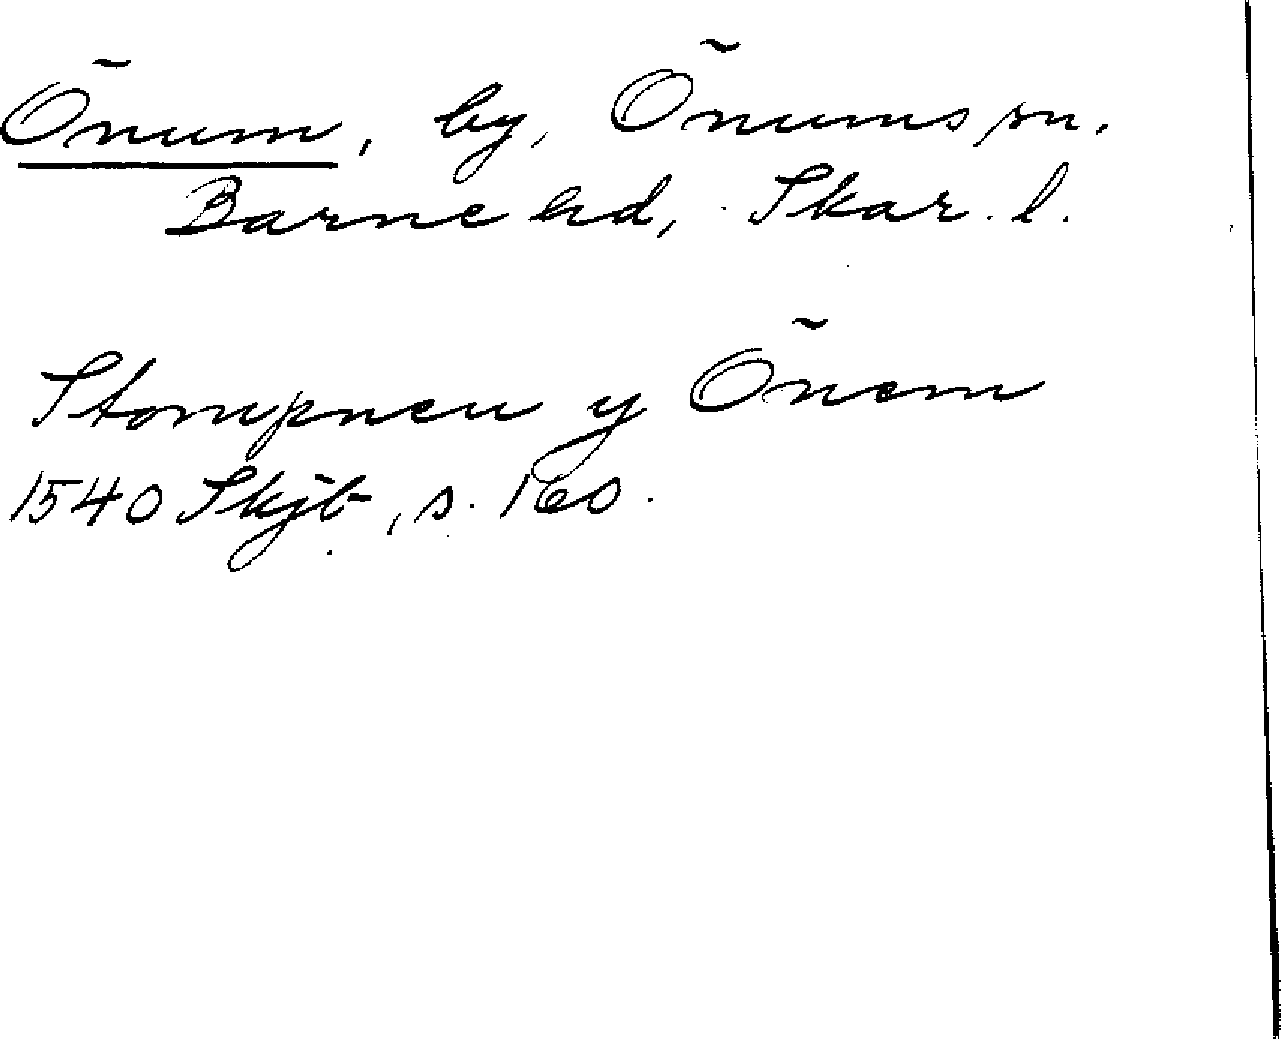 Önum, by, Önums sn.
Barne hd, Skar. l.
Stompneu y Önem
1540 Skjb, s. 160.